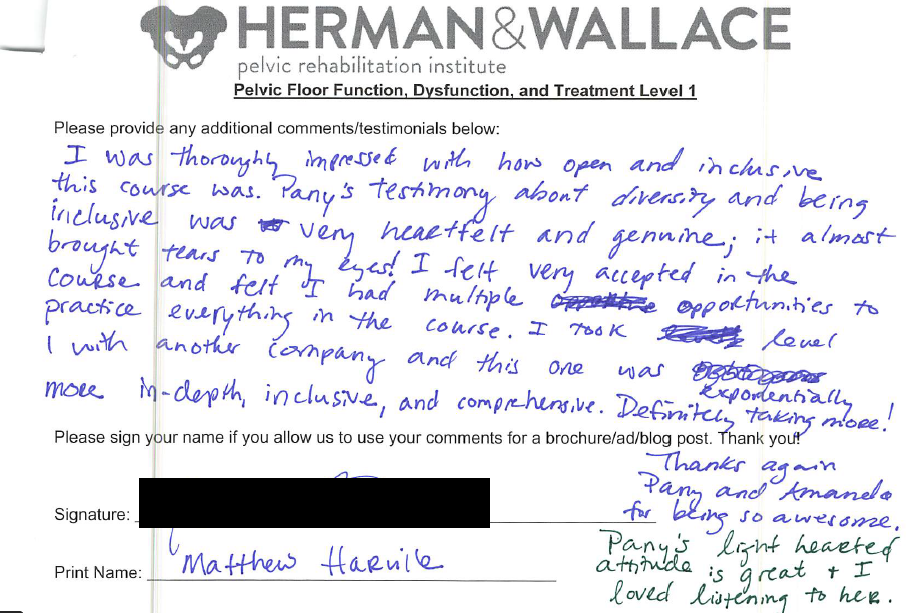 HERMAN&WALLACE
pelvic rehabilitation institute
Pelvic Floor Function, Dysfunction, and Treatment Level 1
Please provide any additional comments/testimonials below:
I was thoroughly impressed with how open and inclusive
this course was. Pany's testimony about diversity and being
inclusive was very heartfelt and genuine; it almost
brought tears to my eyes! I felt very accepted in the
course and felt I had multiple opportunities to
practice everything in the course. I took level
1 with another company and this one was exponentially
more in-depth, inclusive, and comprehensive. Definitely taking more!
Please sign your name if you allow us to use your comments for a brochure/ad/blog post. Thank you!
Thanks again
Pany and Amanda
for being so awesome.
Signature:
Pany's light hearted
attitude is great + I
loved listening to her.
Print Name: Matthew